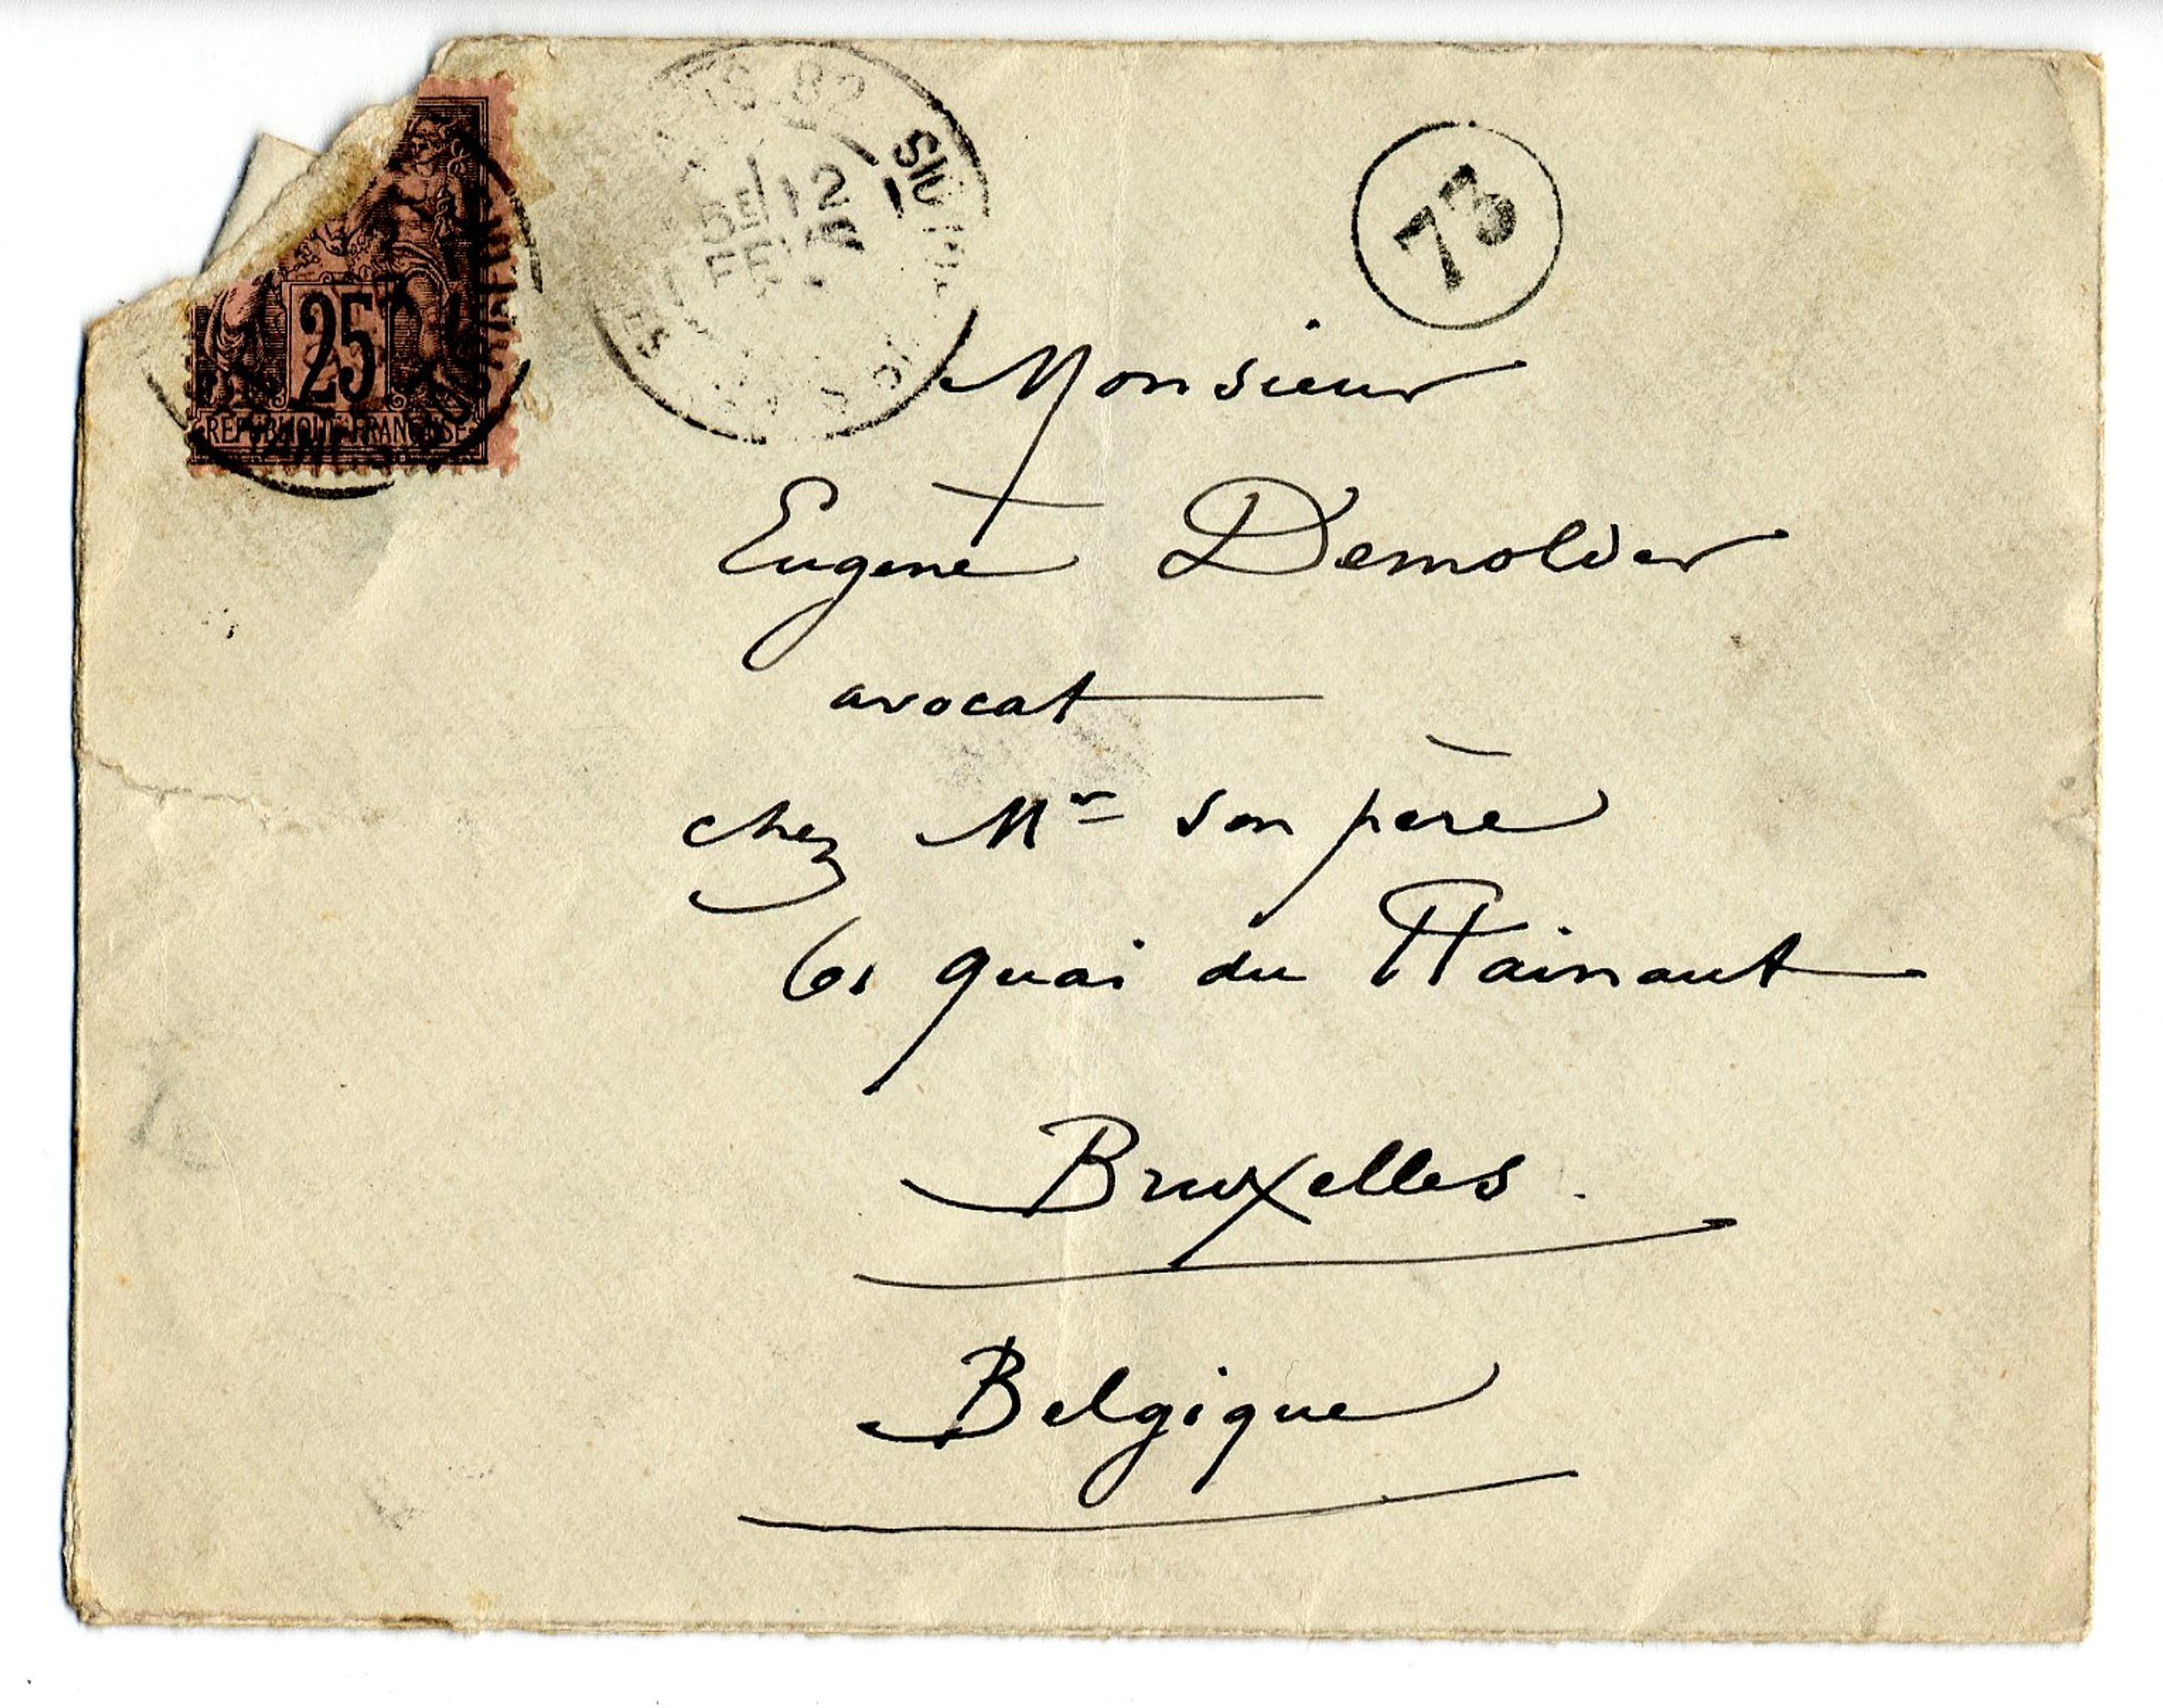 25
REPUBLIQUE FRANÇAISE
82
12
73
Monsieur
Eugène Demolder
avocat
chez Mr son père
61 quai du Hainaut
Bruxelles.
Belgique